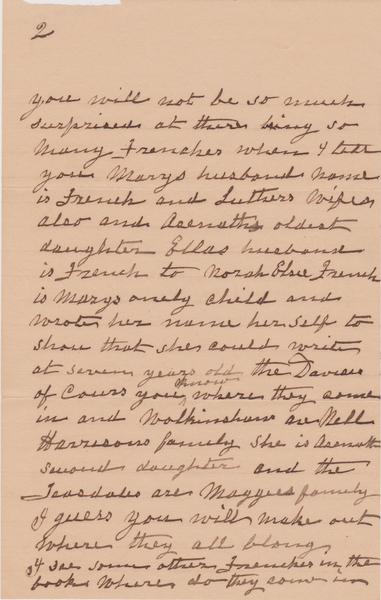 2
you will not be so much
surprised at there being so
many Frenches when I tell
you Marys husband name
is French and Luthers Wifes
also and Asenaths oldest
daughter Ellas husband
is French to Norah Elsie French
is Marys onely child and
wrote her name her self to
show that she could write
at seven years old the Davises
of Cours you know where they come
in and Walkinshaw are Nell
Harrisons family she is Asenath
second daughter and the
Teasdales are Maggies family
I guess you will make out
where they all blong
I see some other Frenches in the
book where do they come in